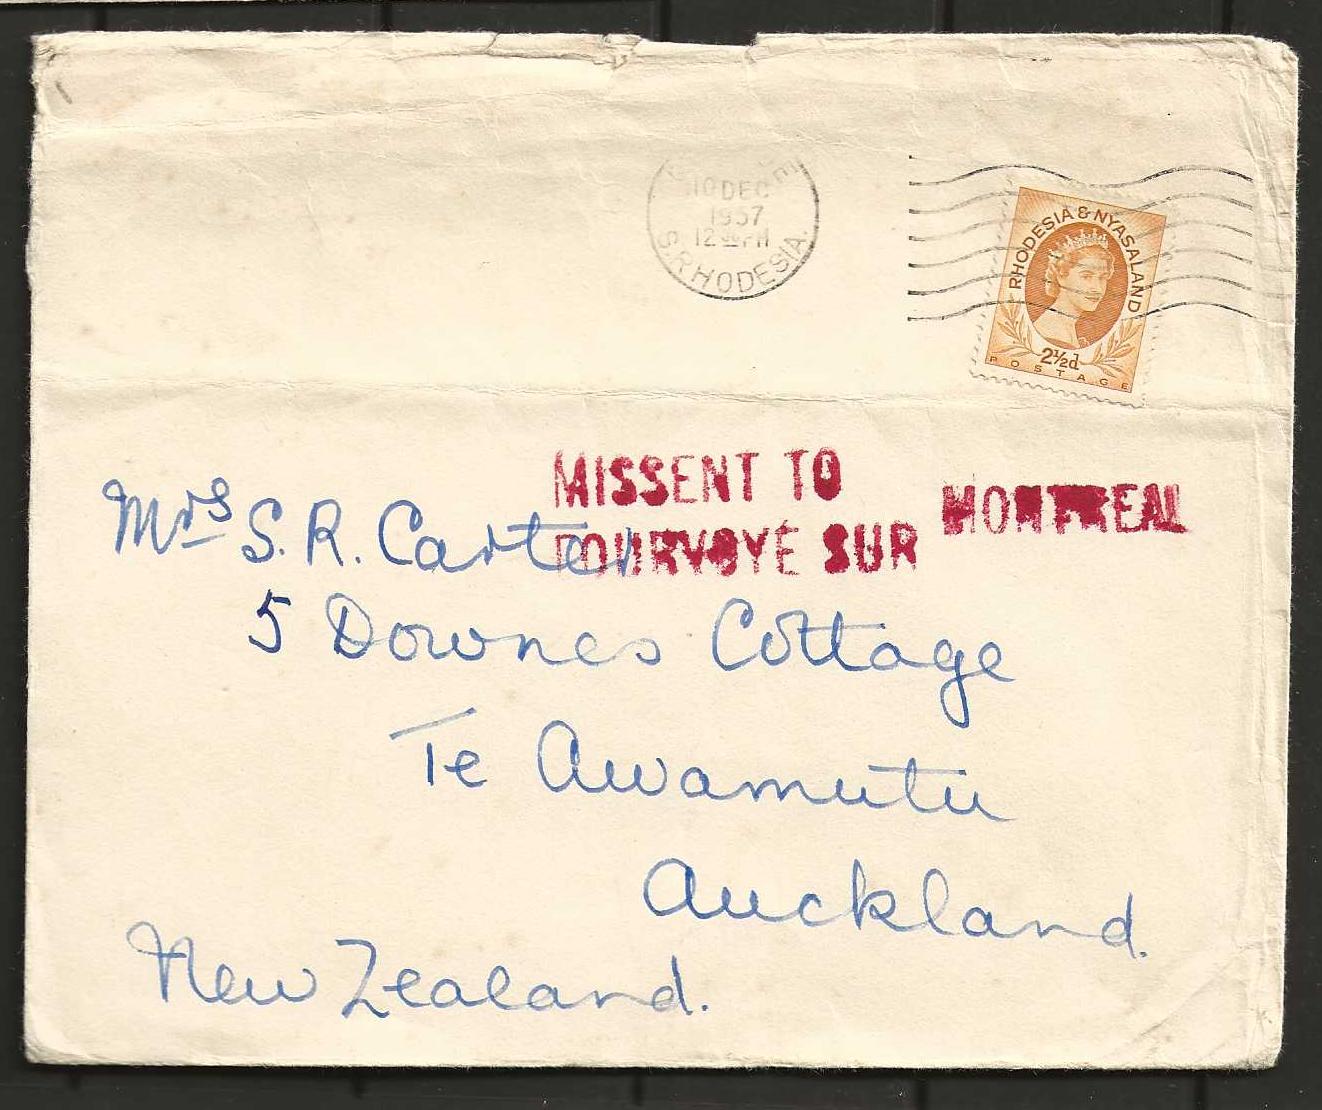 10 DEC
1957
12 PM
S. RHODESIA.
RHODESIA & NYASALAND
2½d
POSTAGE
MISSENT TO
MONTREAL
FOURVOYÉ SUR
Mrs S. R. Carter
5 Downes Cottage
Te Awamutu
Auckland.
New Zealand.